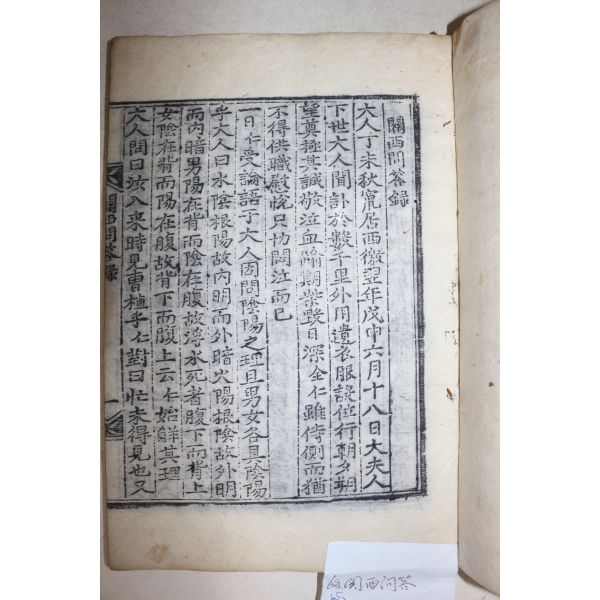 關西問答録
大人丁未秋竄居西徼翌年戊申六月十八日大夫人
下世大人聞訃於數千里外用遺衣服設位行朝夕朔
望奠極其誠敬泣血踰期柴毁日深全仁雖侍側而猶
不得供職慰悅只切悶泣而已
一日仁受論語于大人因問陰陽之理且男女各具陰陽
乎大人曰水陰根陽故內明而外暗火陽根陰故外明
而內暗男陽在背而陰在腹故溺水死者腹下而背上
女陰在背而陽在腹故背下而腹上云仁始解其理
大人問曰汝入來時見曺植乎仁對曰忙未得見也又
關西問答録
一
关西问答